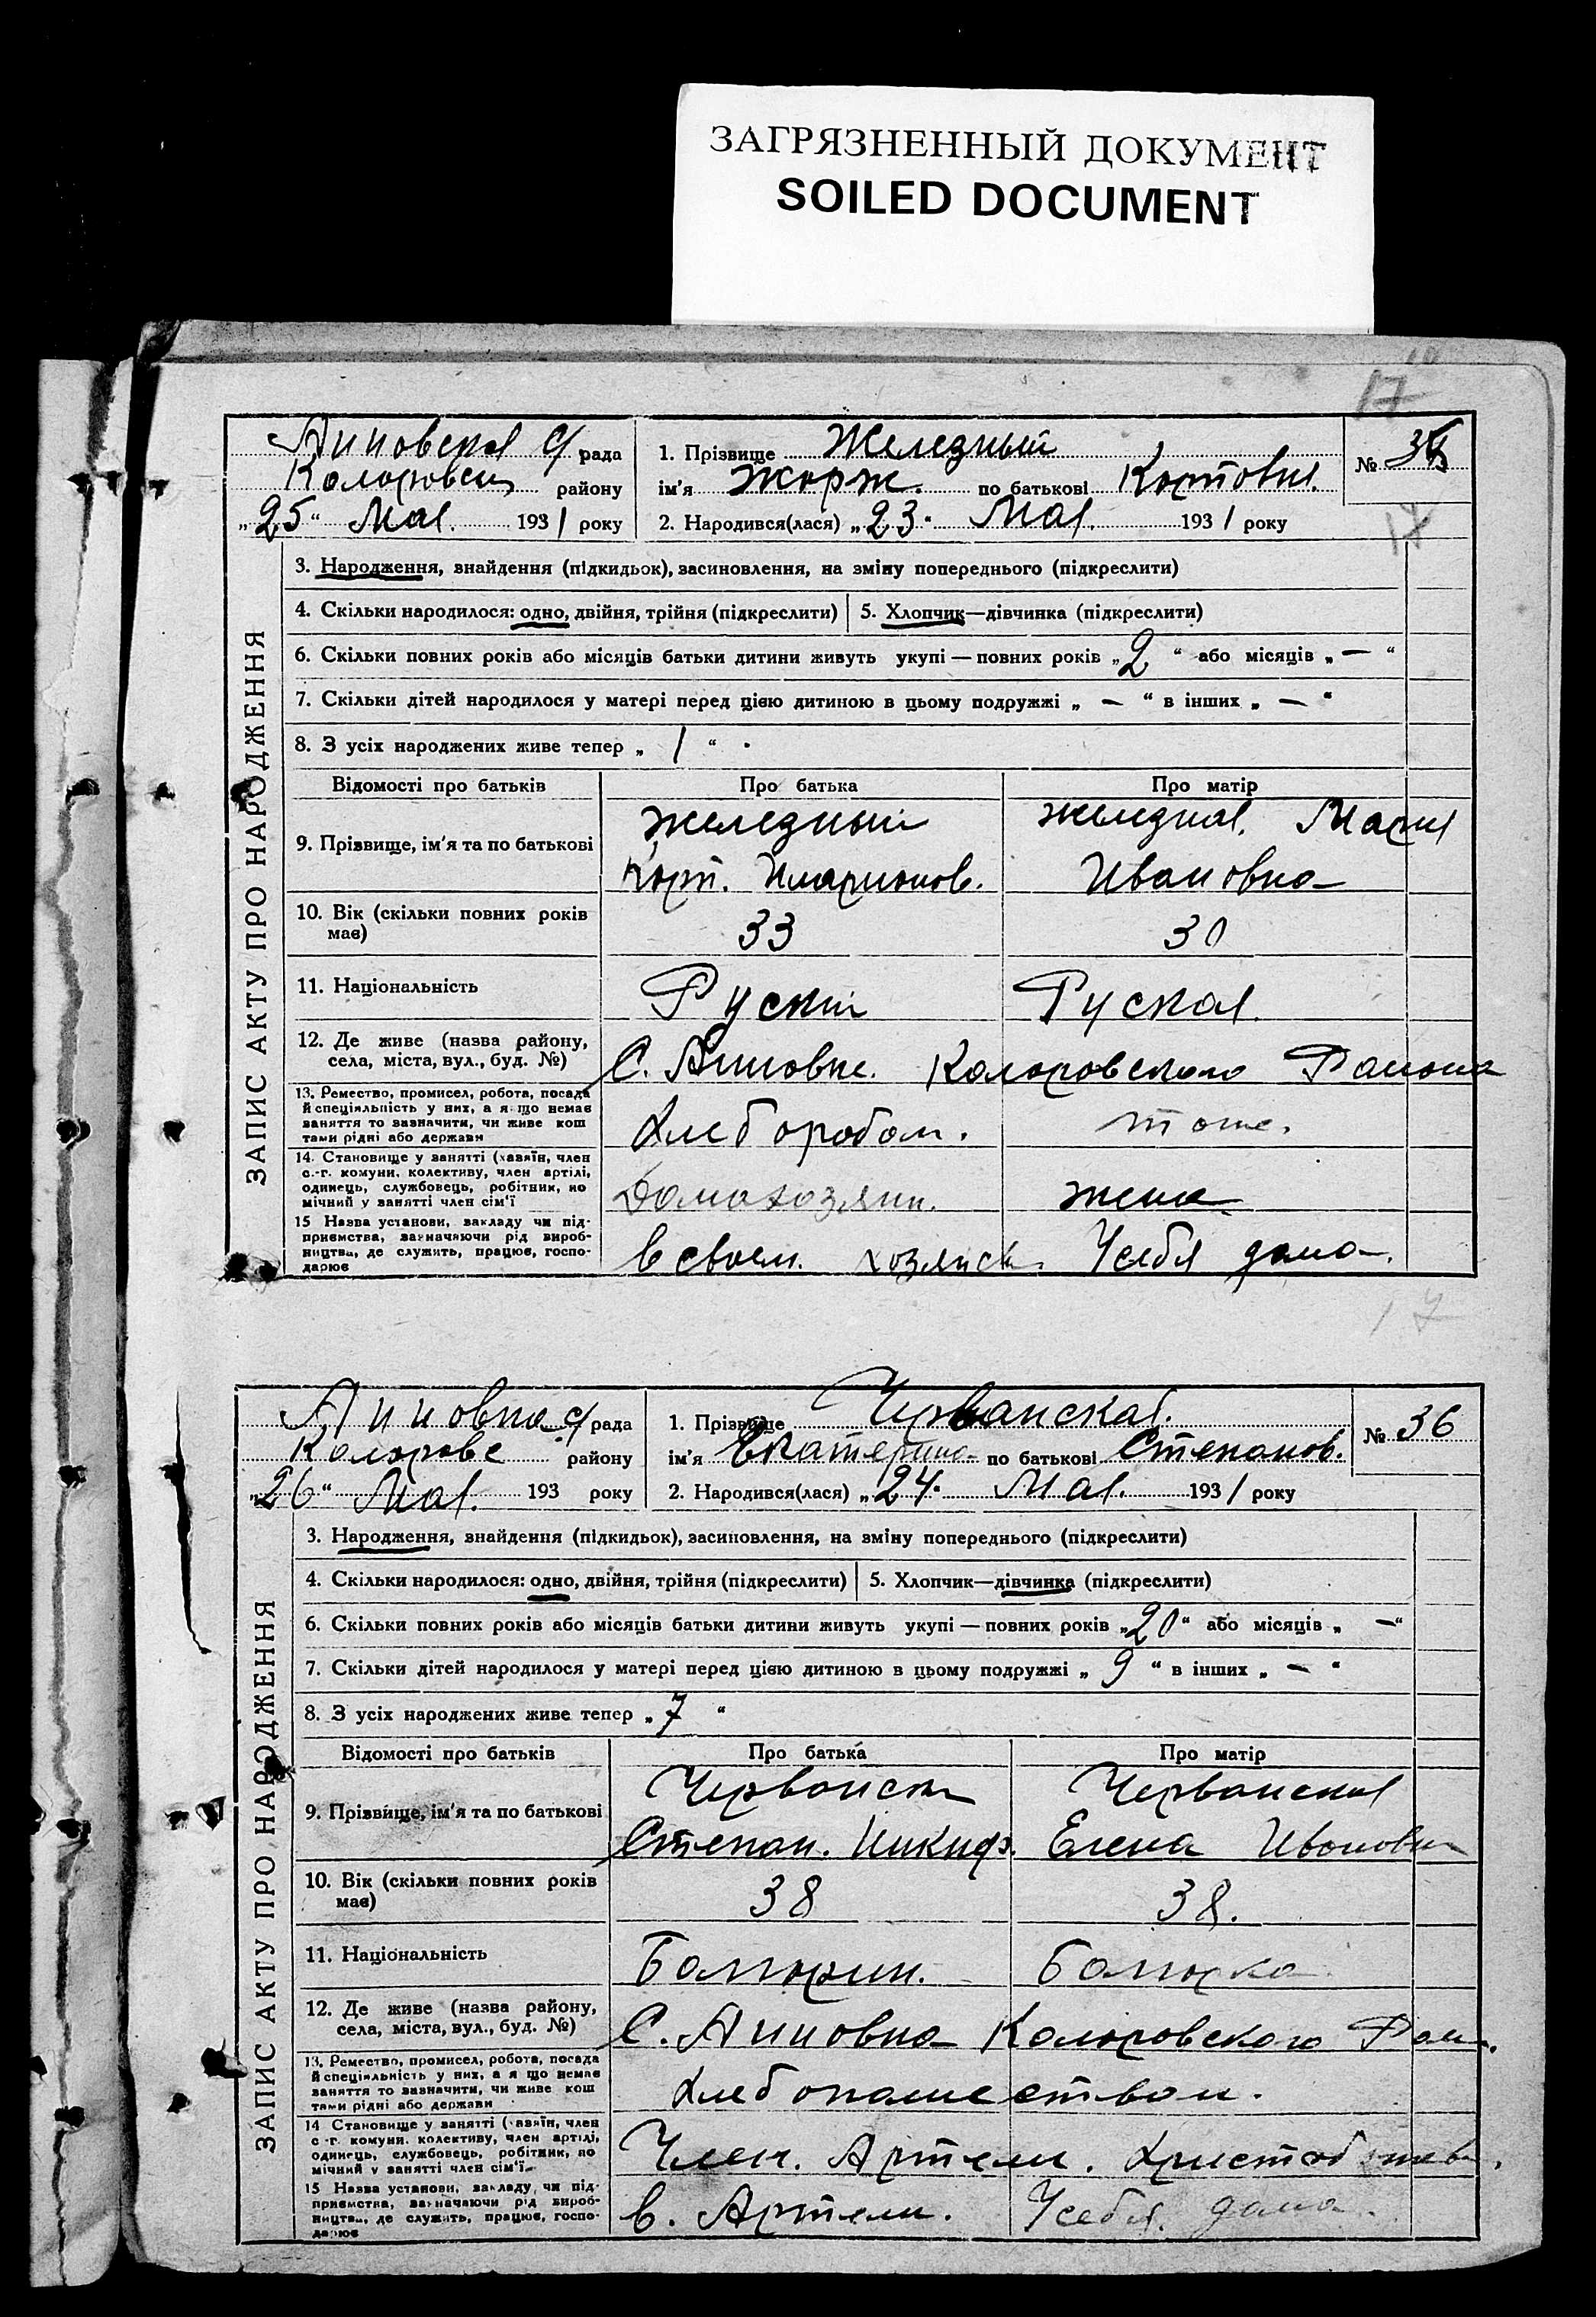 ЗАГРЯЗНЕННЫЙ ДОКУМЕНТ
SOILED DOCUMENT
17
с/рада
району
„25“ Мая. 1931 року
1. Прізвище Железный
ім'я Жорж. по батькові
2. Народився(лася) „23. Мая. 1931 року
№ 35
17
ЗАПИС АКТУ ПРО НАРОДЖЕННЯ
3. Народження, знайдення (підкидьок), засиновлення, на зміну попереднього (підкреслити)
4. Скільки народилося: одно, двійня, трійня (підкреслити)
5. Хлопчик—дівчинка (підкреслити)
6. Скільки повних років або місяців батьки дитини живуть укупі — повних років „2“ або місяців „—“
7. Скільки дітей народилося у матері перед цією дитиною в цьому подружжі „—“ в інших „—“
8. З усіх народжених живе тепер „1“
Відомості про батьків Про батька Про матір
9. Прізвище, ім'я та по батькові
Железный Железная. Мария
Иларионов. Ивановна
10. Вік (скільки повних років має)
33 30
11. Національність
Руский Руская.
12. Де живе (назва району,
села, міста, вул., буд. №)
С. Анновке. Коларовского Района
13. Ремество, промисел, робота, посада
й спеціяльність у них, а якщо немає
заняття то зазначити, чи живе кош
тами рідні або держави
Хлебороbом. тоже.
14. Становище у занятті (хазяїн, член
с.-г. комуни, колективу, член артілі,
одинець, службовець, робітник, по
мічний у занятті член сім'ї
Домохозяин. жена
15 Назва установи, закладу чи під-
приємства, зазначаючи рід вироб-
ництва, де служить, працює, госпо-
дарює
в своем. хозяйст. У себя дома.
17
Анновка с/рада
району
„26“ Мая. 193 року
1. Прізвище Черванская.
ім'я Екатерина по батькові Степанов.
2. Народився(лася) „24. Мая. 1931 року
№ 36
ЗАПИС АКТУ ПРО НАРОДЖЕННЯ
3. Народження, знайдення (підкидьок), засиновлення, на зміну попереднього (підкреслити)
4. Скільки народилося: одно, двійня, трійня (підкреслити)
5. Хлопчик—дівчинка (підкреслити)
6. Скільки повних років або місяців батьки дитини живуть укупі — повних років „20“ або місяців „—“
7. Скільки дітей народилося у матері перед цією дитиною в цьому подружжі „9“ в інших „—“
8. З усіх народжених живе тепер „7“
Відомості про батьків Про батька Про матір
9. Прізвище, ім'я та по батькові
Червански Черванская
Степан. Никиф. Елена Ивановн
10. Вік (скільки повних років має)
38 38.
11. Національність
Болгарин. Болгарка
12. Де живе (назва району,
села, міста, вул., буд. №)
С. Анновка Коларовского Рай.
13. Ремество, промисел, робота, посада
й спеціяльність у них, а якщо немає
заняття то зазначити, чи живе кош
тами рідні або держави
Хлебопашеством.
14 Становище у занятті (хазяїн, член
с-г. комуни, колективу, член артілі,
одинець, службовець, робітник, по
мічний у занятті член сім'ї
Член. Артели.
15 Назва установи, закладу, чи під-
приємства, зазначаючи рід вироб-
ництва, де служить, працює, госпо-
дарює
в. Артели. У себя. дома.